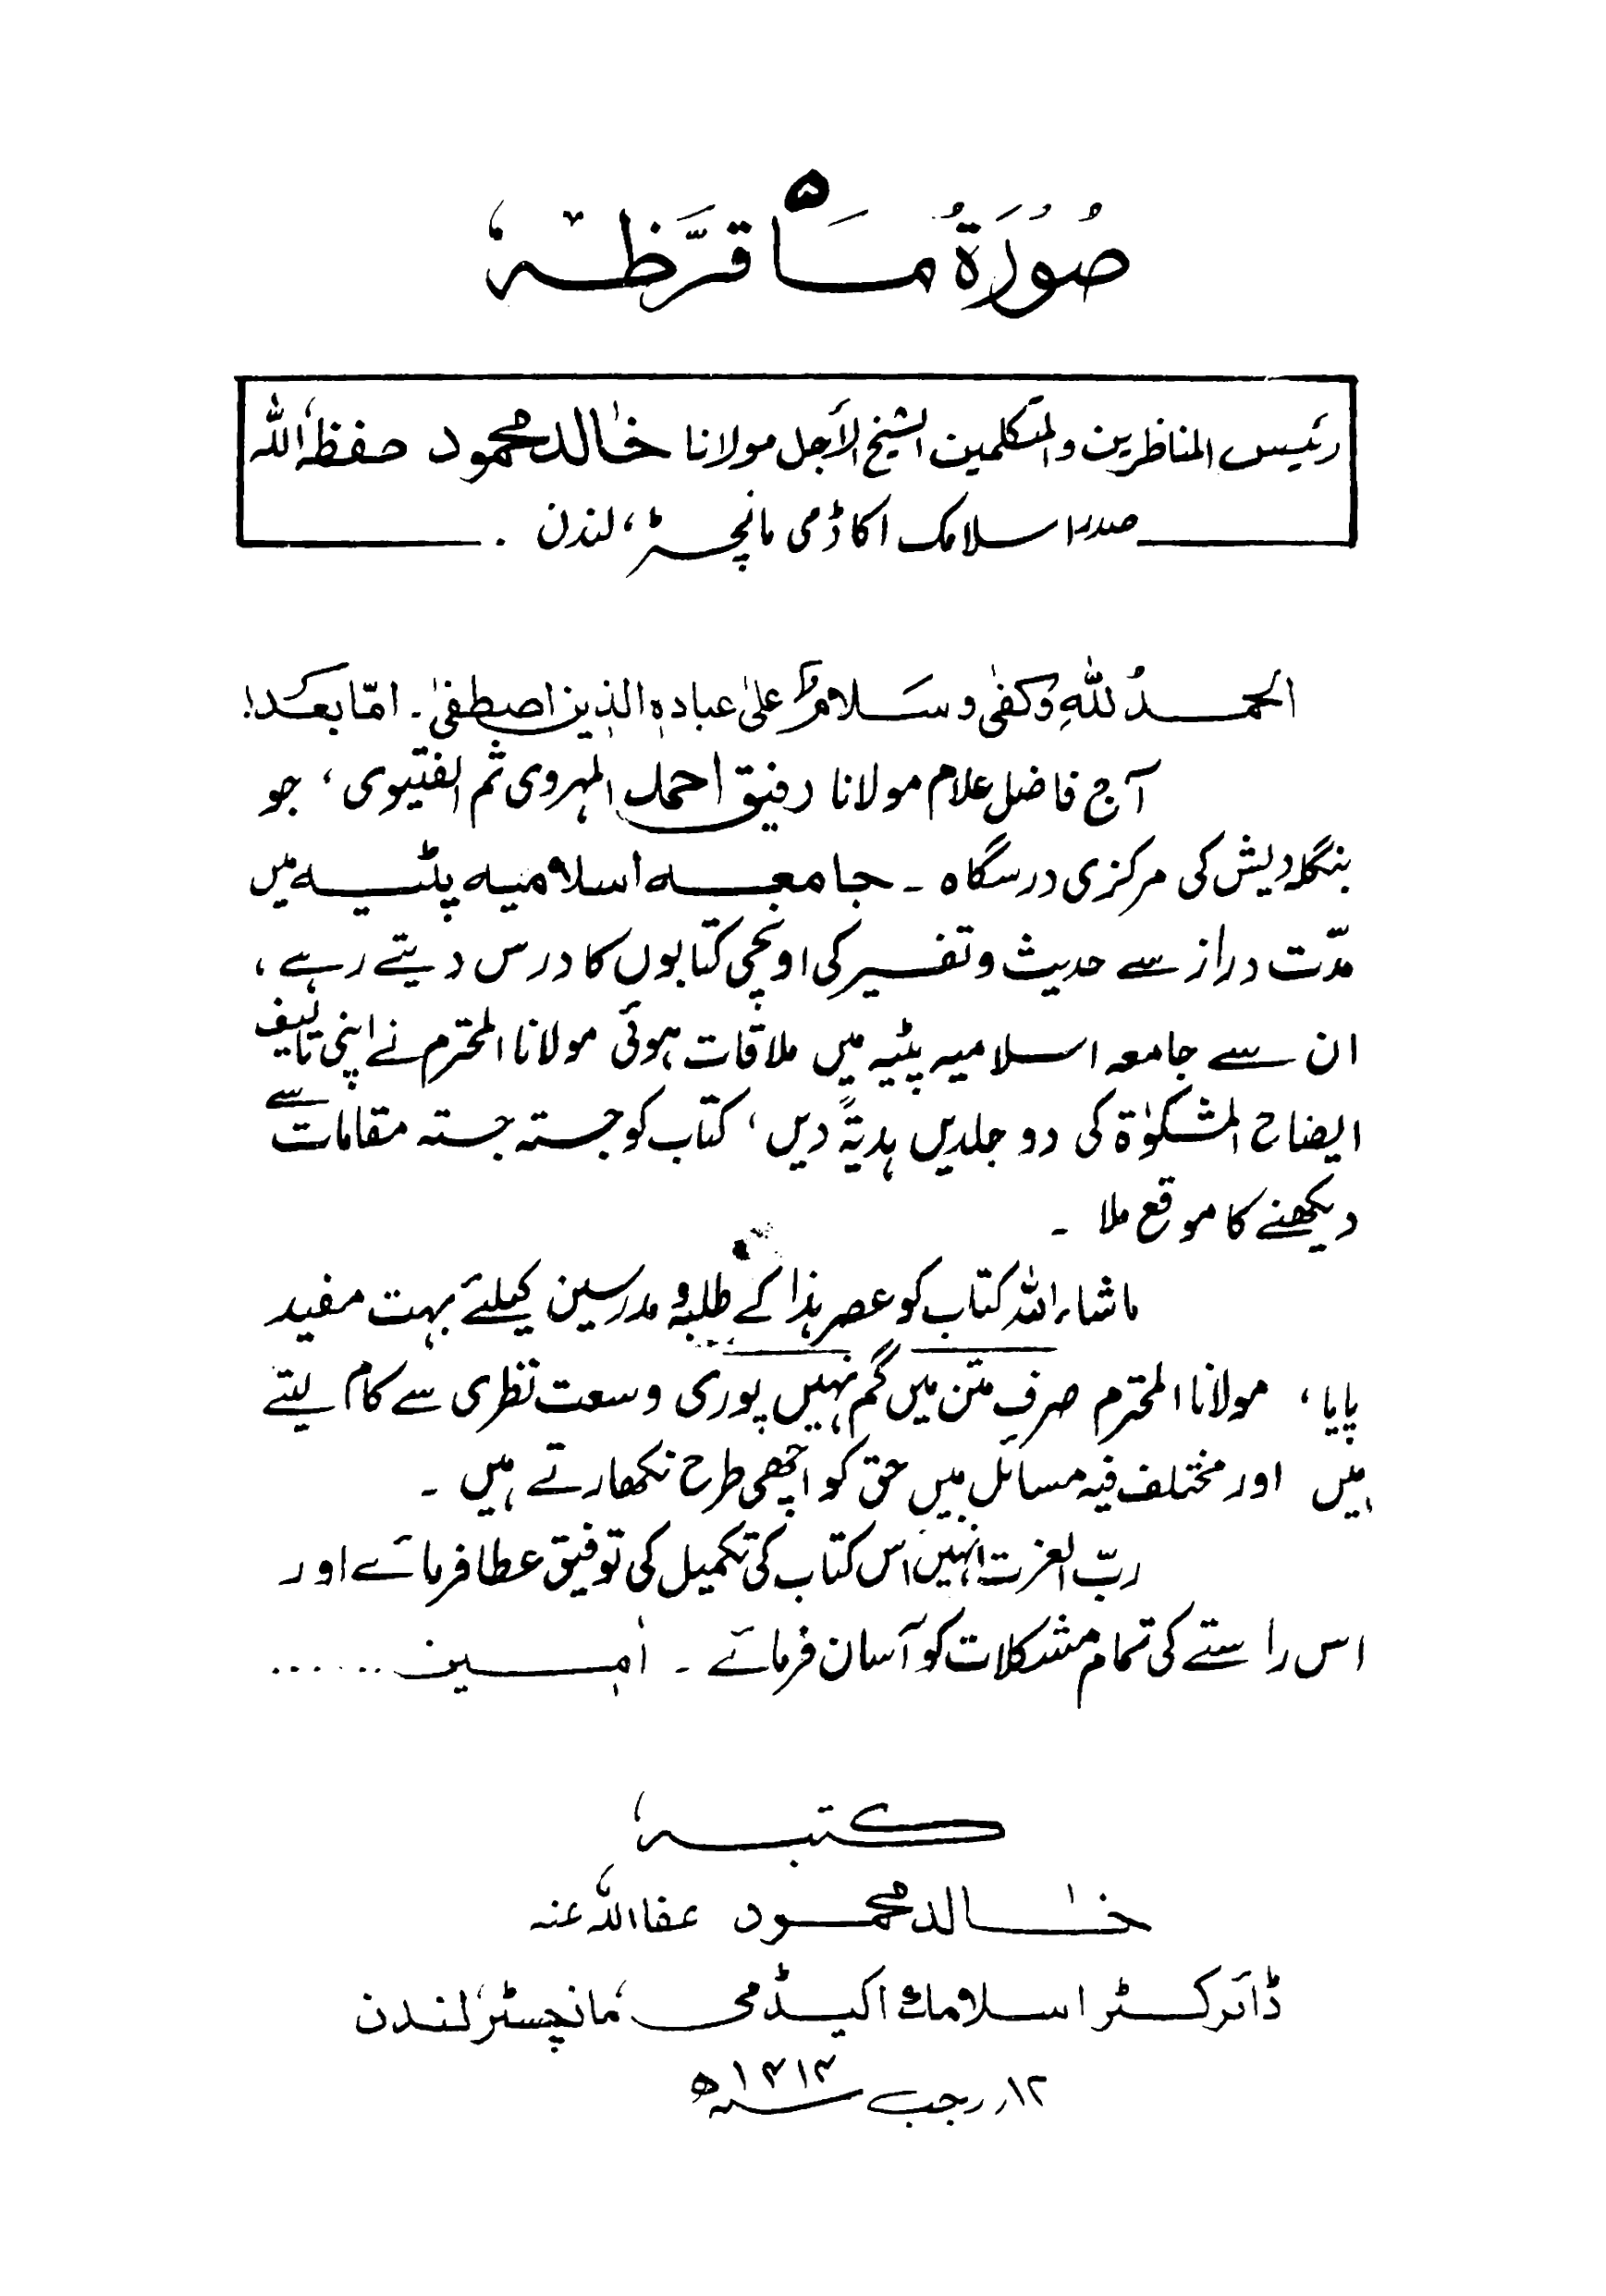 ۵
صُوْرَةُ مَا قرَّظہٗ
رئیس المناظرین والمتکلمین الشیخ الأجل مولانا خالد محمود حفظہٗ اللہ
صدر اسلامک اکاڈمی مانچسٹر، لندن .
الحمدُ للہِ وکفیٰ و سَلامٌ علیٰ عبادہ الذین اصطفیٰ ۔ امّا بعد!
آج فاضل علام مولانا رفیق احمد المہروی ثم الفتیوی، جو
بنگلہ دیش کی مرکزی درسگاہ ۔ جامعہ اسلامیہ پٹیہ میں
مدّت دراز سے حدیث و تفسیر کی اونچی کتابوں کا درس دیتے رہے،
ان سے جامعہ اسلامیہ پٹیہ میں ملاقات ہوئی مولانا المحترم نے اپنی تالیف
ایضاح المشکوٰۃ کی دو جلدیں ہدیۃً دیں، کتاب کو جستہ جستہ مقامات سے
دیکھنے کا موقع ملا ۔
ماشاء اللہ کتاب کو عصر ہذا کے طلبہ و مدرسین کیلئے بہت مفید
پایا، مولانا المحترم صرف متن میں گم نہیں پوری وسعت نظری سے کام لیتے
ہیں اور مختلف فیہ مسائل میں حق کو اچھی طرح نکھارتے ہیں ۔
ربّ العزت انہیں اس کتاب کی تکمیل کی توفیق عطا فرمائے اور
اس راستے کی تمام مشکلات کو آسان فرمائے ۔ اٰمین ......
کتبہٗ
خالد محمود عفا اللہُ عنہ
ڈائرکٹر اسلامک اکیڈمی، مانچسٹر، لندن
۱۲؍ رجب سنہ ۱۴۱۳ھ